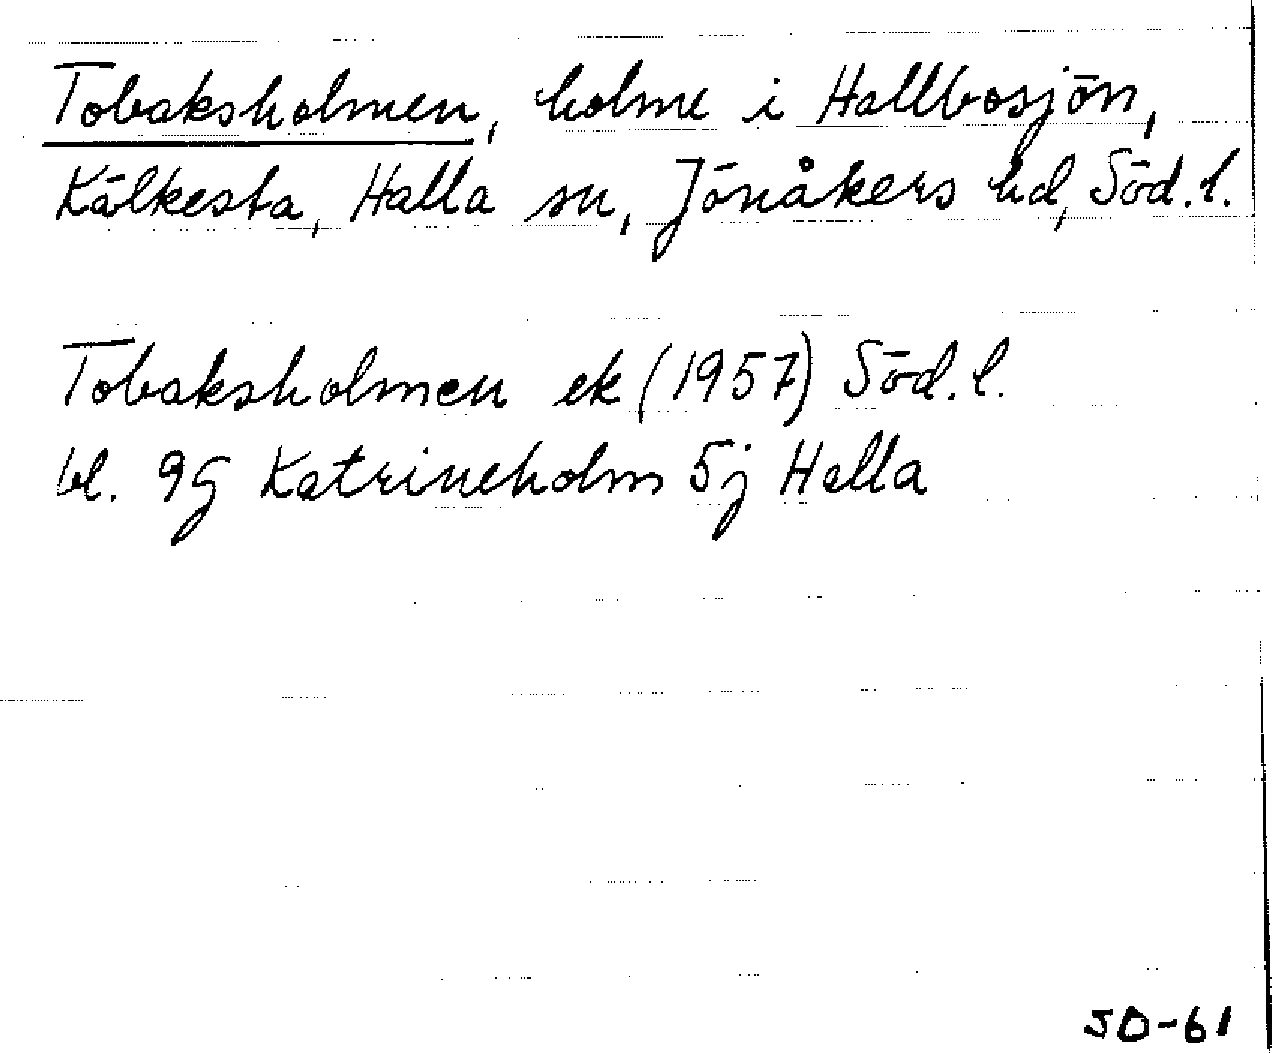 Tobaksholmen, holme i Hallbosjön,
Kälkesta, Halla sn, Jönåkers hd, Söd. l.
Tobaksholmen ek (1957) Söd. l.
bl. 9G Katrineholm 5j Halla
SO-61